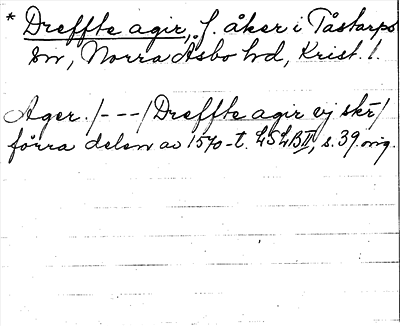 * Dreffte agir, f. åker i Tåstarps
sn, Norra Åsbo hd, Krist. l.
Ager. /---/ Dreffte agir ej skr/
förra delen av 1570-t. LSLB II, s. 39 orig.